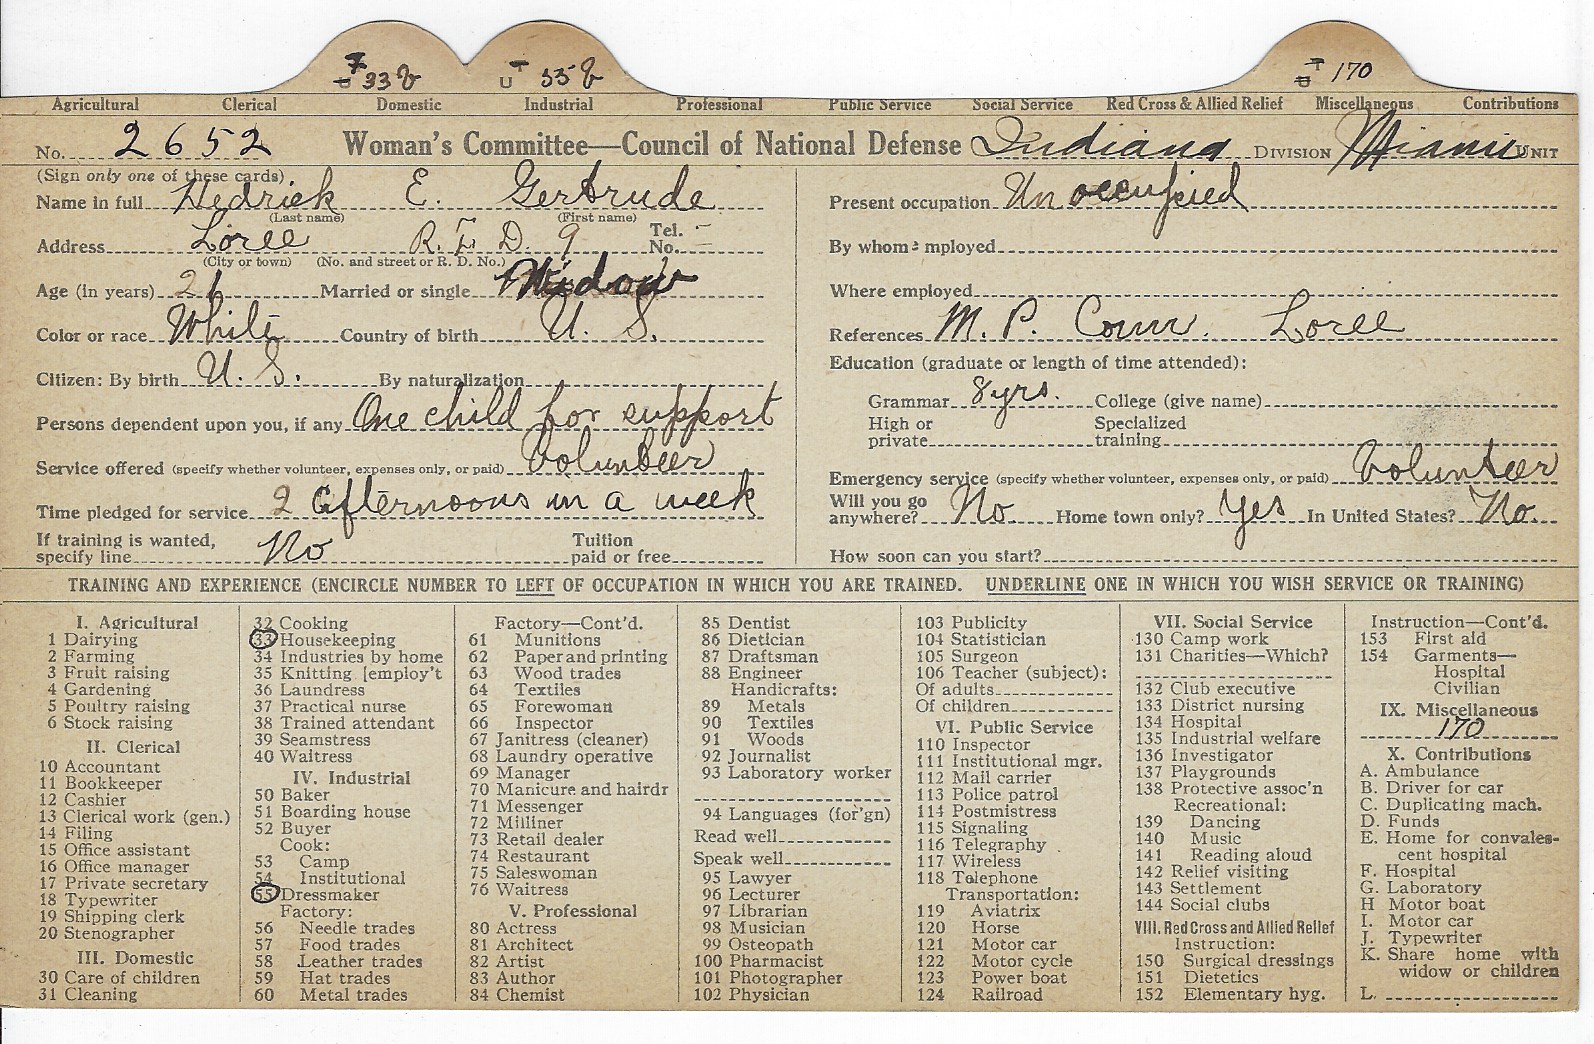 33 55 170
Agricultural Clerical Domestic Industrial Professional Public Service Social Service Red Cross & Allied Relief Miscellaneous Contributions
No. 2652 Woman's Committee—Council of National Defense Indiana DIVISION Miami UNIT
(Sign only one of these cards)
Name in full Hedrick E. Gertrude
(Last name) (First name)
Address Loree R. F. D. 9 Tel. No. —
(City or town) (No. and street or R. D. No.)
Age (in years) 21 Married or single Widow
Color or race White Country of birth U. S.
Citizen: By birth U. S. By naturalization
Persons dependent upon you, if any One child for support
Service offered (specify whether volunteer, expenses only, or paid) Volunteer
Time pledged for service 2 afternoons in a week
If training is wanted,
specify line No Tuition
paid or free
Present occupation Unoccupied
By whom employed
Where employed
References M. P. Conn. Loree
Education (graduate or length of time attended):
Grammar 8 yrs. College (give name)
High or
private Specialized
training
Emergency service (specify whether volunteer, expenses only, or paid) Volunteer
Will you go
anywhere? No Home town only? Yes In United States? No.
How soon can you start?
TRAINING AND EXPERIENCE (ENCIRCLE NUMBER TO LEFT OF OCCUPATION IN WHICH YOU ARE TRAINED. UNDERLINE ONE IN WHICH YOU WISH SERVICE OR TRAINING)
I. Agricultural
1 Dairying
2 Farming
3 Fruit raising
4 Gardening
5 Poultry raising
6 Stock raising
II. Clerical
10 Accountant
11 Bookkeeper
12 Cashier
13 Clerical work (gen.)
14 Filing
15 Office assistant
16 Office manager
17 Private secretary
18 Typewriter
19 Shipping clerk
20 Stenographer
III. Domestic
30 Care of children
31 Cleaning
32 Cooking
33 Housekeeping
34 Industries by home
35 Knitting [employ't
36 Laundress
37 Practical nurse
38 Trained attendant
39 Seamstress
40 Waitress
IV. Industrial
50 Baker
51 Boarding house
52 Buyer
Cook:
53 Camp
54 Institutional
55 Dressmaker
Factory:
56 Needle trades
57 Food trades
58 Leather trades
59 Hat trades
60 Metal trades
Factory—Cont'd.
61 Munitions
62 Paper and printing
63 Wood trades
64 Textiles
65 Forewoman
66 Inspector
67 Janitress (cleaner)
68 Laundry operative
69 Manager
70 Manicure and hairdr
71 Messenger
72 Milliner
73 Retail dealer
74 Restaurant
75 Saleswoman
76 Waitress
V. Professional
80 Actress
81 Architect
82 Artist
83 Author
84 Chemist
85 Dentist
86 Dietician
87 Draftsman
88 Engineer
Handicrafts:
89 Metals
90 Textiles
91 Woods
92 Journalist
93 Laboratory worker
94 Languages (for'gn)
Read well
Speak well
95 Lawyer
96 Lecturer
97 Librarian
98 Musician
99 Osteopath
100 Pharmacist
101 Photographer
102 Physician
103 Publicity
104 Statistician
105 Surgeon
106 Teacher (subject):
Of adults
Of children
VI. Public Service
110 Inspector
111 Institutional mgr.
112 Mail carrier
113 Police patrol
114 Postmistress
115 Signaling
116 Telegraphy
117 Wireless
118 Telephone
Transportation:
119 Aviatrix
120 Horse
121 Motor car
122 Motor cycle
123 Power boat
124 Railroad
VII. Social Service
130 Camp work
131 Charities—Which?
132 Club executive
133 District nursing
134 Hospital
135 Industrial welfare
136 Investigator
137 Playgrounds
138 Protective assoc'n
Recreational:
139 Dancing
140 Music
141 Reading aloud
142 Relief visiting
143 Settlement
144 Social clubs
VIII. Red Cross and Allied Relief
Instruction:
150 Surgical dressings
151 Dietetics
152 Elementary hyg.
Instruction—Cont'd.
153 First aid
154 Garments—
Hospital
Civilian
IX. Miscellaneous
170
X. Contributions
A. Ambulance
B. Driver for car
C. Duplicating mach.
D. Funds
E. Home for convales-
cent hospital
F. Hospital
G. Laboratory
H Motor boat
I. Motor car
J. Typewriter
K. Share home with
widow or children
L.